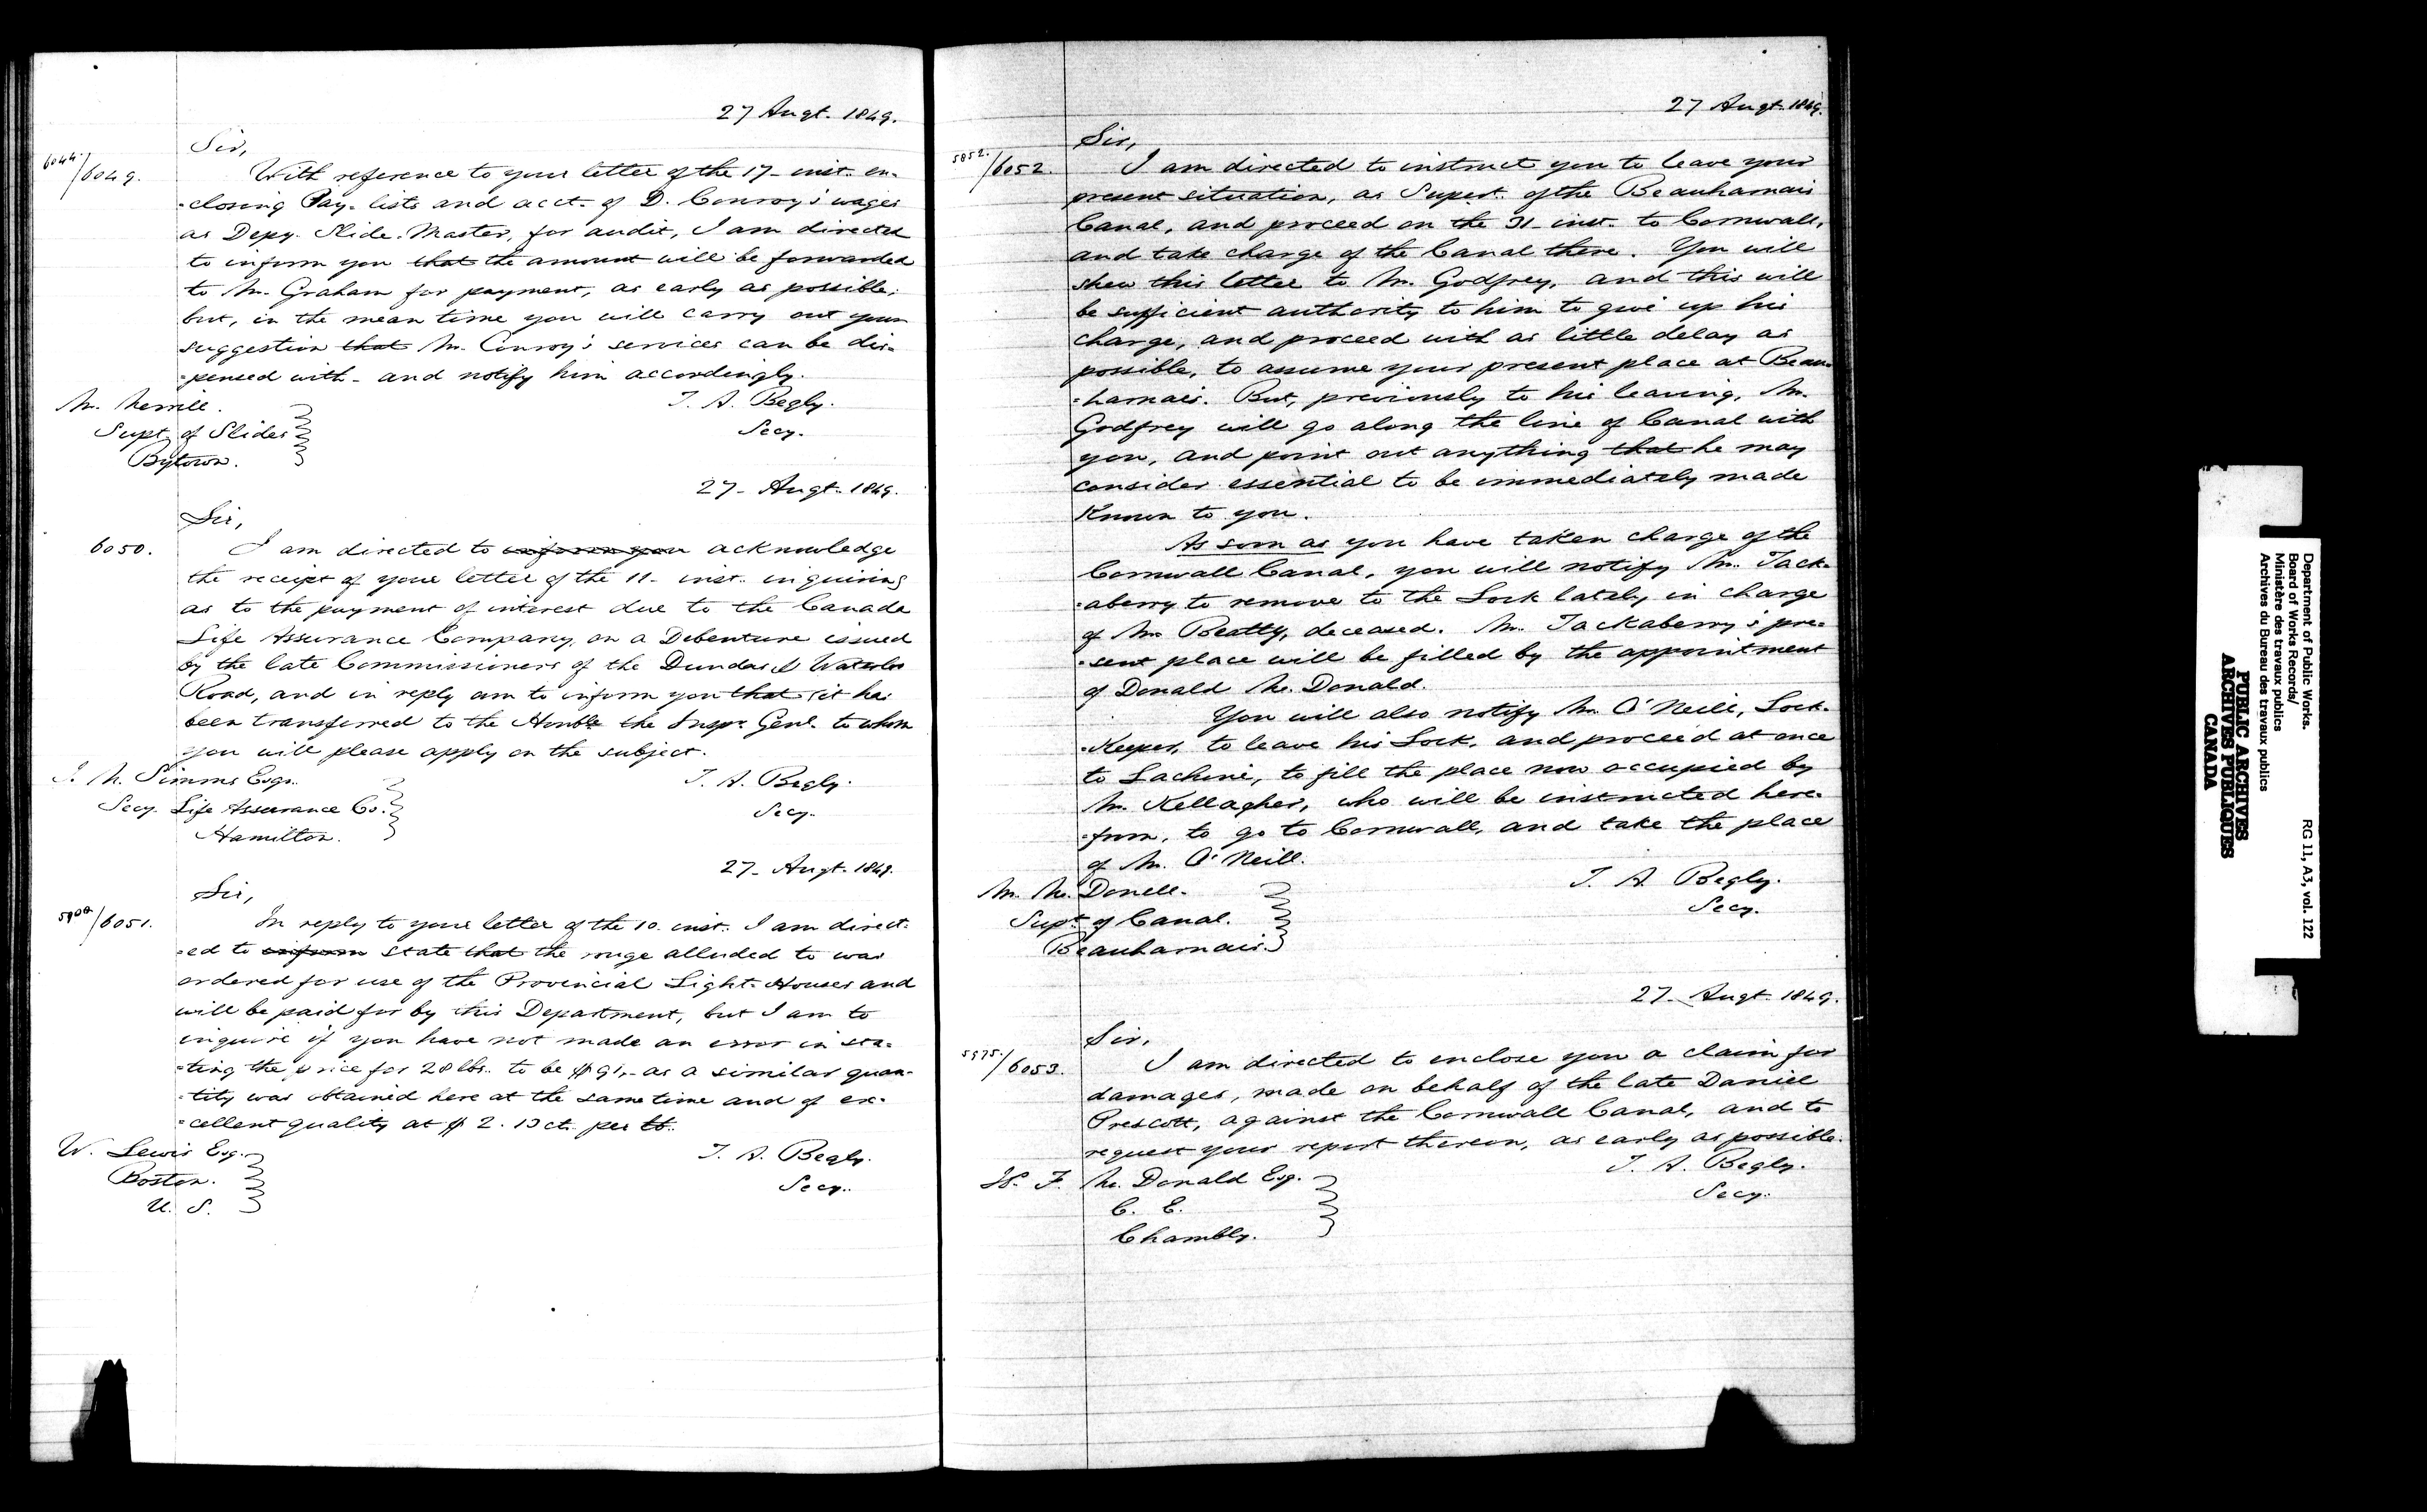 27 Augt. 1849.
Sir,
6044./6049.
With reference to your letter of the 17- inst. en-
-closing Pay. lists and acct. of D. Conroy's wages
as Depy. Slide. Master, for audit, I am directed
to inform you that the amount will be forwarded
to Mr. Graham for payment, as early as possible;
but, in the mean time you will carry out your
suggestion that Mr. Conroy's services can be dis-
-pensed with- and notify him accordingly.
T. A. Begly.
Secy.
Mr. Merrill.
Supt. of Slides
Bytown.
27- Augt. 1849.
Sir,
6050.
I am directed to inform you acknowledge
the receipt of your letter of the 11- inst. inquiring
as to the payment of interest due to the Canada
Life Assurance Company, on a Debenture issued
by the late Commissioners of the Dundas & Waterloo
Road, and in reply am to inform you that it has
been transferred to the Honble the Inspr. Genl. to whom
you will please apply on the subject.
T. A. Begly.
Secy.
T. M. Simms Esqr.
Secy. Life Assurance Co.
Hamilton.
27- Augt. 1849.
Sir,
/6051.
In reply to your letter of the 10. inst. I am direct-
-ed to inform state that the rouge alluded to was
ordered for use of the Provincial Light-Houses and
will be paid for by this Department, but I am to
inquire if you have not made an error in sta-
-ting the price for 28 lbs. to be $91,- as a similar quan-
-tity was obtained here at the same time and of ex-
-cellent quality at $2. 10 ct. per lb.
T. A. Begly.
Secy.
W. Lewis Esq.
Boston.
U. S.
27 Augt. 1849.
Sir,
5852./6052.
I am directed to instruct you to leave your
present situation, as Supert. of the Beauharnais
Canal, and proceed on the 31- inst. to Cornwall,
and take charge of the Canal there. You will
shew this letter to Mr. Godfrey, and this will
be sufficient authority to him to give up his
charge, and proceed with as little delay as
possible, to assume your present place at Beau-
-harnais. But, previously to his leaving, Mr.
Godfrey will go along the line of Canal with
you, and point out anything that he may
consider essential to be immediately made
known to you.
As soon as you have taken charge of the
Cornwall Canal, you will notify Mr. Jack-
-aberry to remove to the Lock lately in charge
of Mr. Beatty, deceased. Mr. Jackaberry's pre-
-sent place will be filled by the appointment
of Donald Mc. Donald.
You will also notify Mr. O'Neill, Lock-
-Keeper, to leave his Lock, and proceed at once
to Lachine, to fill the place now occupied by
Mr. Kellagher, who will be instructed here-
-from, to go to Cornwall, and take the place
of Mr. O'Neill.
T. A. Begly.
Secy.
Mr. Mc. Donell.
Supt. of Canal.
Beauharnais.
27- Augt. 1849.
Sir,
5975./6053.
I am directed to enclose you a claim for
damages, made on behalf of the late Daniel
Prescott, against the Cornwall Canal, and to
request your report thereon, as early as possible.
T. A. Begly.
Secy.
W. F. Mc. Donald Esq.
C. E.
Chambly.
Department of Public Works.
Board of Works Records/
Ministère des travaux publics
Archives du Bureau des travaux publics
RG 11, A3, vol. 122
PUBLIC ARCHIVES
ARCHIVES PUBLIQUES
CANADA